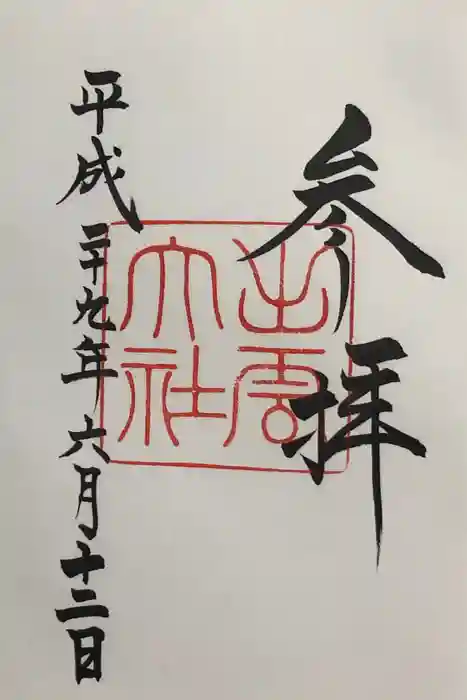 参拝
出雲
大社
平成二十九年六月十二日